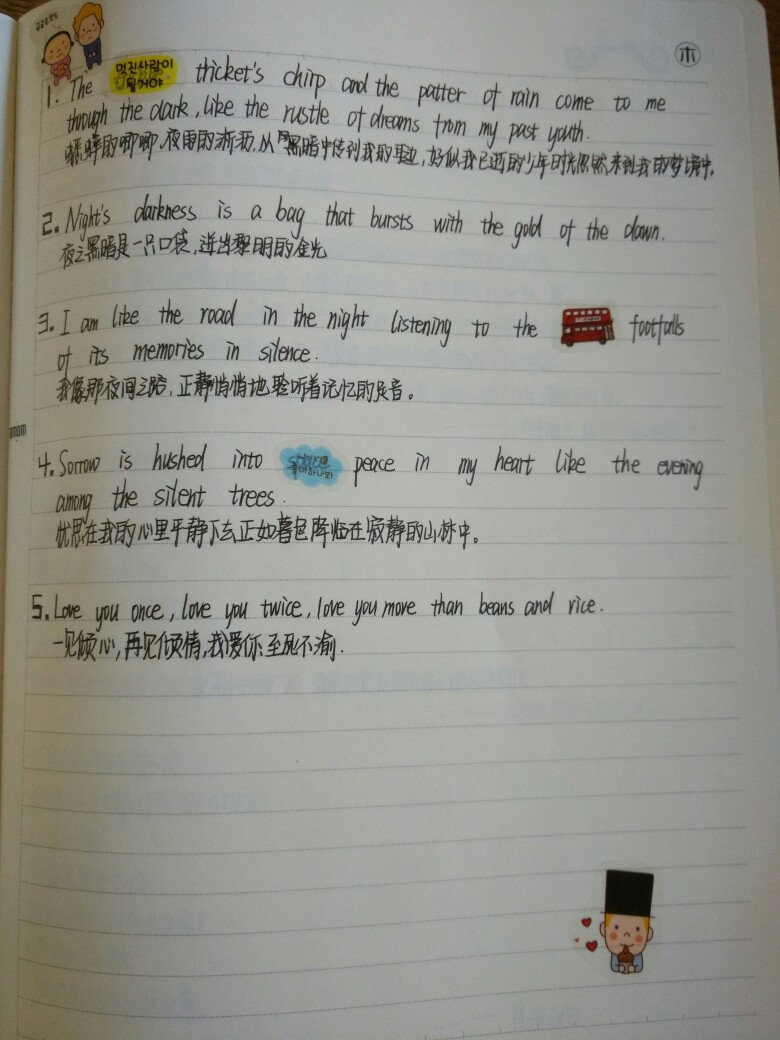 木
멋진사람이
될거야
1. The thicket's chirp and the patter of rain come to me
through the dark, like the rustle of dreams from my past youth.
蟋蟀的唧唧,夜雨的淅沥,从黑暗中传到我的耳边,好似我已逝的少年时光依然来到我的梦境中.
2. Night's darkness is a bag that bursts with the gold of the dawn.
夜之黑暗是一只口袋,迸出黎明的金光
3. I am like the road in the night listening to the footfalls
of its memories in silence.
我像那夜间之路,正静悄悄地聆听着记忆的足音。
4. Sorrow is hushed into peace in my heart like the evening
among the silent trees.
忧思在我的心里平静下去正如暮色降临在寂静的山林中。
5. Love you once, love you twice, love you more than beans and rice.
一见倾心,再见倾情,我爱你至死不渝.